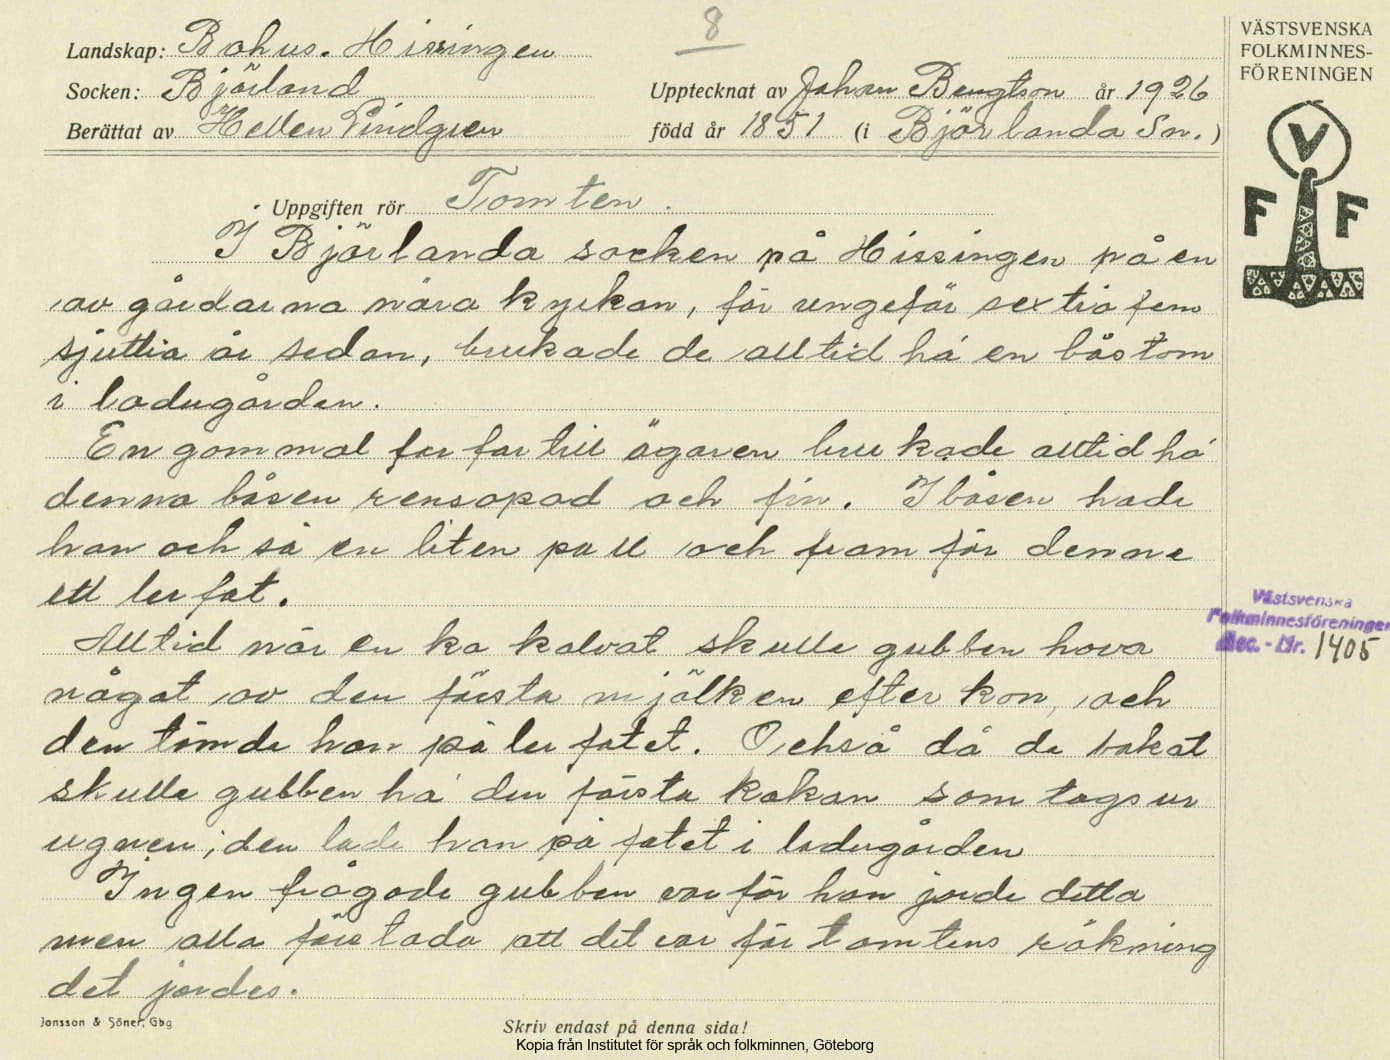 8
Landskap: Bohus. Hissingen
Socken: Björland
Upptecknat av Johan Bengtson år 1926
Berättat av Hellen Lindgren
född år 1851 (i Björlanda Sn.)
VÄSTSVENSKA
FOLKMINNES-
FÖRENINGEN
V
F F
Uppgiften rör Tomten.
I Björlanda socken på Hissingen på en
av gårdarna nära kyrkan, för ungefär sextio fem
sjuttia år sedan, brukade de alltid há en bås tom
i ladugården.
En gammal farfar till ägaren brukade alltid há
denna båsen rensopad och fin. I båsen hade
han och så en liten pall och framför denna
ett lerfat.
Alltid när en ko kalvat skulle gubben hava
något av den första mjölken efter kon, och
den tömde han på lerfatet. Också då de bakat
skulle gubben há den första kakan som togs ur
ugnen; den lade han på fatet i ladugården
Ingen frågade gubben varför han jorde detta
men alla förstoda att det var för tomtens räkning
det jordes.
Västsvenska
Folkminnesföreningen
Acc. - Nr. 1405
Jonsson & Söner, Gbg
Skriv endast på denna sida!
Kopia från Institutet för språk och folkminnen, Göteborg